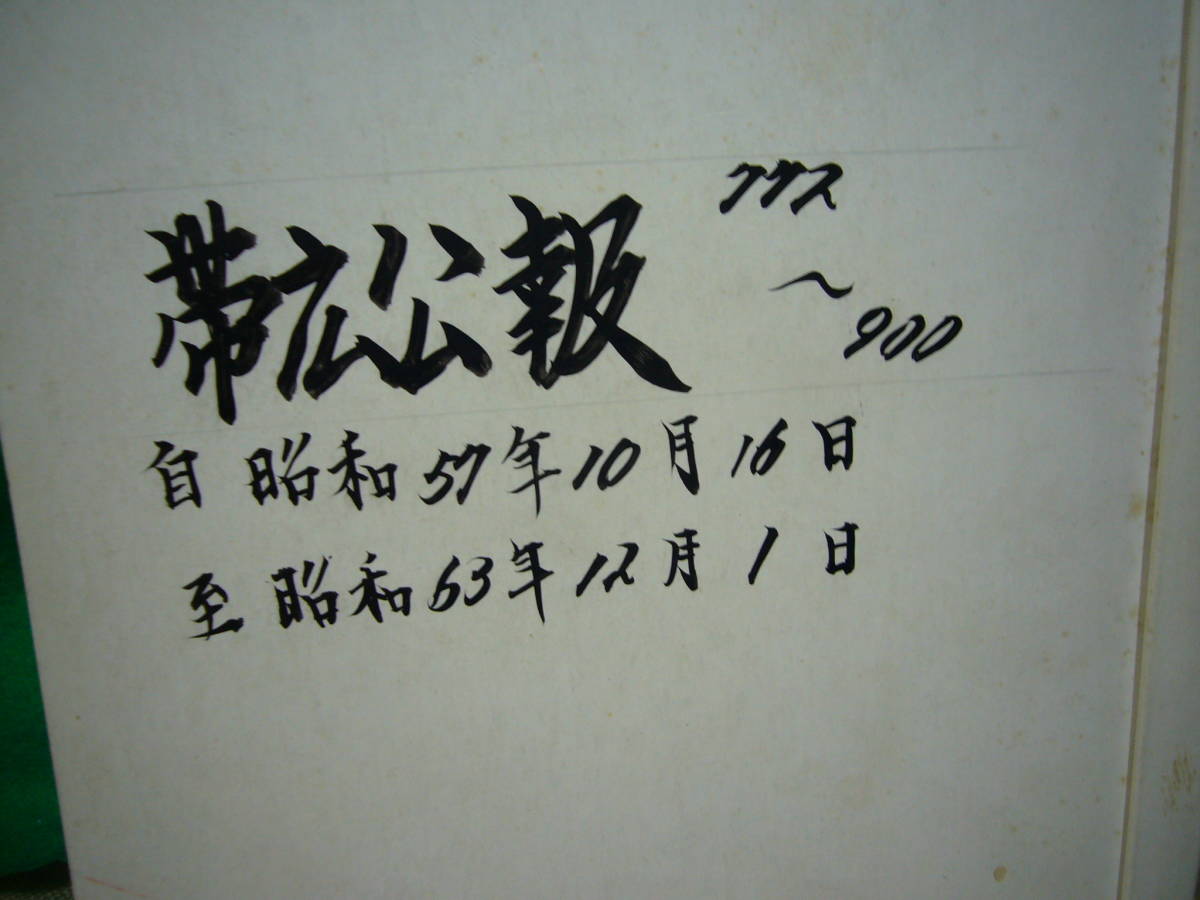 帯広公報
～
900
自 昭和57年10月16日
至 昭和63年12月1日